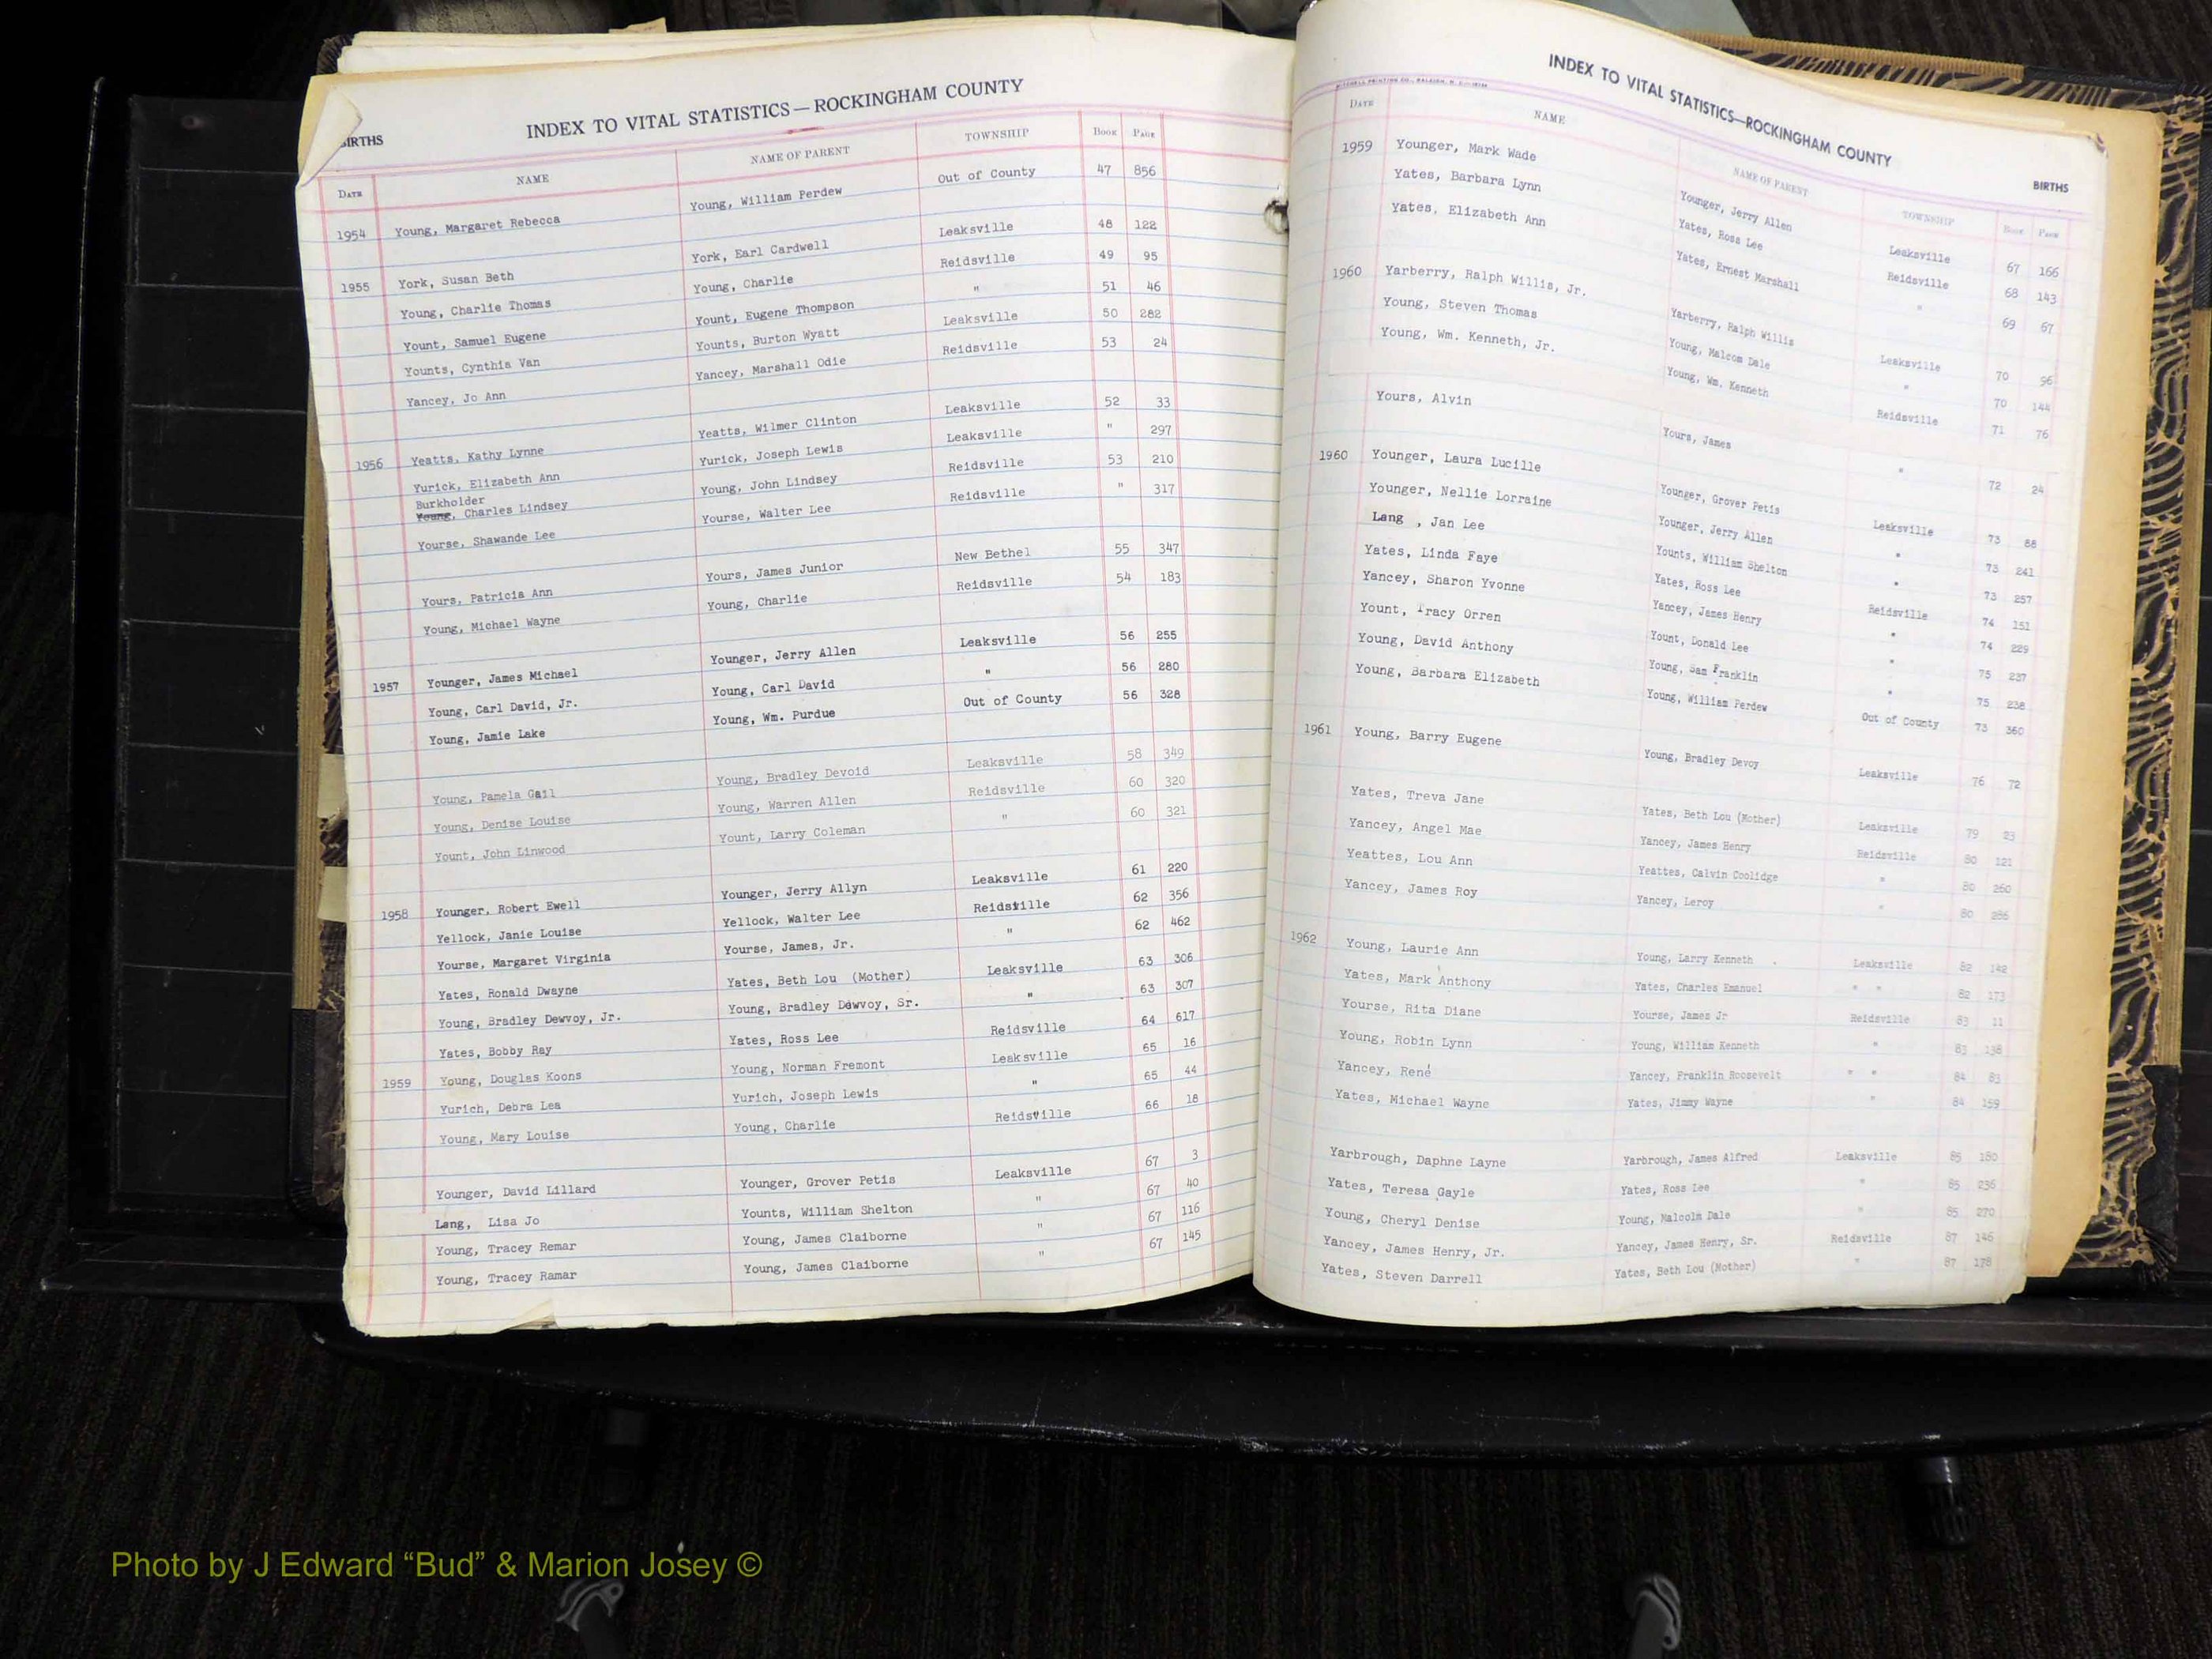 BIRTHS
INDEX TO VITAL STATISTICS—ROCKINGHAM COUNTY
DATE NAME NAME OF PARENT TOWNSHIP BOOK PAGE
1954 Young, Margaret Rebecca Young, William Perdew Out of County 47 856
1955 York, Susan Beth York, Earl Cardwell Leaksville 48 122
Young, Charlie Thomas Young, Charlie Reidsville 49 95
Yount, Samuel Eugene Yount, Eugene Thompson " 51 46
Younts, Cynthia Van Younts, Burton Wyatt Leaksville 50 282
Yancey, Jo Ann Yancey, Marshall Odie Reidsville 53 24
1956 Yeatts, Kathy Lynne Yeatts, Wilmer Clinton Leaksville 52 33
Yurick, Elizabeth Ann Yurick, Joseph Lewis Leaksville " 297
Burkholder
Young, Charles Lindsey Young, John Lindsey Reidsville 53 210
Yourse, Shawande Lee Yourse, Walter Lee Reidsville " 317
Yours, Patricia Ann Yours, James Junior New Bethel 55 347
Young, Michael Wayne Young, Charlie Reidsville 54 183
1957 Younger, James Michael Younger, Jerry Allen Leaksville 56 255
Young, Carl David, Jr. Young, Carl David " 56 280
Young, Jamie Lake Young, Wm. Purdue Out of County 56 328
Young, Pamela Gail Young, Bradley Devoid Leaksville 58 349
Young, Denise Louise Young, Warren Allen Reidsville 60 320
Yount, John Linwood Yount, Larry Coleman " 60 321
1958 Younger, Robert Ewell Younger, Jerry Allyn Leaksville 61 220
Yellock, Janie Louise Yellock, Walter Lee Reidsville 62 356
Yourse, Margaret Virginia Yourse, James, Jr. " 62 462
Yates, Ronald Dwayne Yates, Beth Lou (Mother) Leaksville 63 306
Young, Bradley Dewvoy, Jr. Young, Bradley Dewvoy, Sr. " 63 307
Yates, Bobby Ray Yates, Ross Lee Reidsville 64 617
1959 Young, Douglas Koons Young, Norman Fremont Leaksville 65 16
Yurich, Debra Lea Yurich, Joseph Lewis " 65 44
Young, Mary Louise Young, Charlie Reidsville 66 18
Younger, David Lillard Younger, Grover Petis Leaksville 67 3
Lang, Lisa Jo Younts, William Shelton " 67 40
Young, Tracey Remar Young, James Claiborne " 67 116
Young, Tracey Ramar Young, James Claiborne " 67 145
INDEX TO VITAL STATISTICS—ROCKINGHAM COUNTY
BIRTHS
DATE NAME NAME OF PARENT TOWNSHIP BOOK PAGE
1959 Younger, Mark Wade Younger, Jerry Allen Leaksville 67 166
Yates, Barbara Lynn Yates, Ross Lee Reidsville 68 143
Yates, Elizabeth Ann Yates, Ernest Marshall " 69 67
1960 Yarberry, Ralph Willis, Jr. Yarberry, Ralph Willis Leaksville 70 96
Young, Steven Thomas Young, Malcom Dale " 70 144
Young, Wm. Kenneth, Jr. Young, Wm. Kenneth Reidsville 71 76
Yours, Alvin Yours, James " 72 24
1960 Younger, Laura Lucille Younger, Grover Petis Leaksville 73 88
Younger, Nellie Lorraine Younger, Jerry Allen " 73 241
Lang , Jan Lee Younts, William Shelton " 73 257
Yates, Linda Faye Yates, Ross Lee Reidsville 74 151
Yancey, Sharon Yvonne Yancey, James Henry " 74 229
Yount, Tracy Orren Yount, Donald Lee " 75 237
Young, David Anthony Young, Sam Franklin " 75 238
Young, Barbara Elizabeth Young, William Perdew Out of County 73 360
1961 Young, Barry Eugene Young, Bradley Devoy Leaksville 76 72
Yates, Treva Jane Yates, Beth Lou (Mother) Leaksville 79 23
Yancey, Angel Mae Yancey, James Henry Reidsville 80 121
Yeattes, Lou Ann Yeattes, Calvin Coolidge " 80 260
Yancey, James Roy Yancey, Leroy " 80 286
1962 Young, Laurie Ann Young, Larry Kenneth Leaksville 82 142
Yates, Mark Anthony Yates, Charles Emanuel " " 82 173
Yourse, Rita Diane Yourse, James Jr Reidsville 83 11
Young, Robin Lynn Young, William Kenneth " 83 138
Yancey, René Yancey, Franklin Roosevelt " " 84 83
Yates, Michael Wayne Yates, Jimmy Wayne " 84 159
Yarbrough, Daphne Layne Yarbrough, James Alfred Leaksville 85 180
Yates, Teresa Gayle Yates, Ross Lee " 85 236
Young, Cheryl Denise Young, Malcolm Dale " 85 270
Yancey, James Henry, Jr. Yancey, James Henry, Sr. Reidsville 87 146
Yates, Steven Darrell Yates, Beth Lou (Mother) " 87 178
Photo by J Edward “Bud” & Marion Josey ©